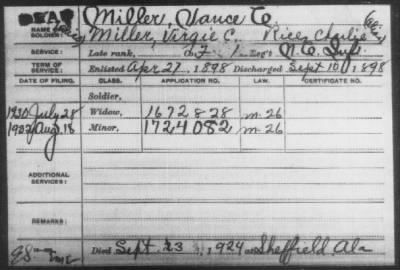 DEAD Miller, Vance C.
NAME OF SOLDIER: Miller, Virgie C. Rice, Charlie
SERVICE: Late rank, Co. F 1 Reg't N.C. Inf.
TERM OF SERVICE: Enlisted Apr 27, 1898 Discharged Sept 10, 1898
DATE OF FILING. CLASS. APPLICATION NO. LAW. CERTIFICATE NO.
Soldier,
1930 July 28 Widow, 1672828 m-26
1932 Aug. 18 Minor, 1724082 m-26
ADDITIONAL SERVICES:
REMARKS:
Died Sept 23, 1924 at Sheffield, Ala